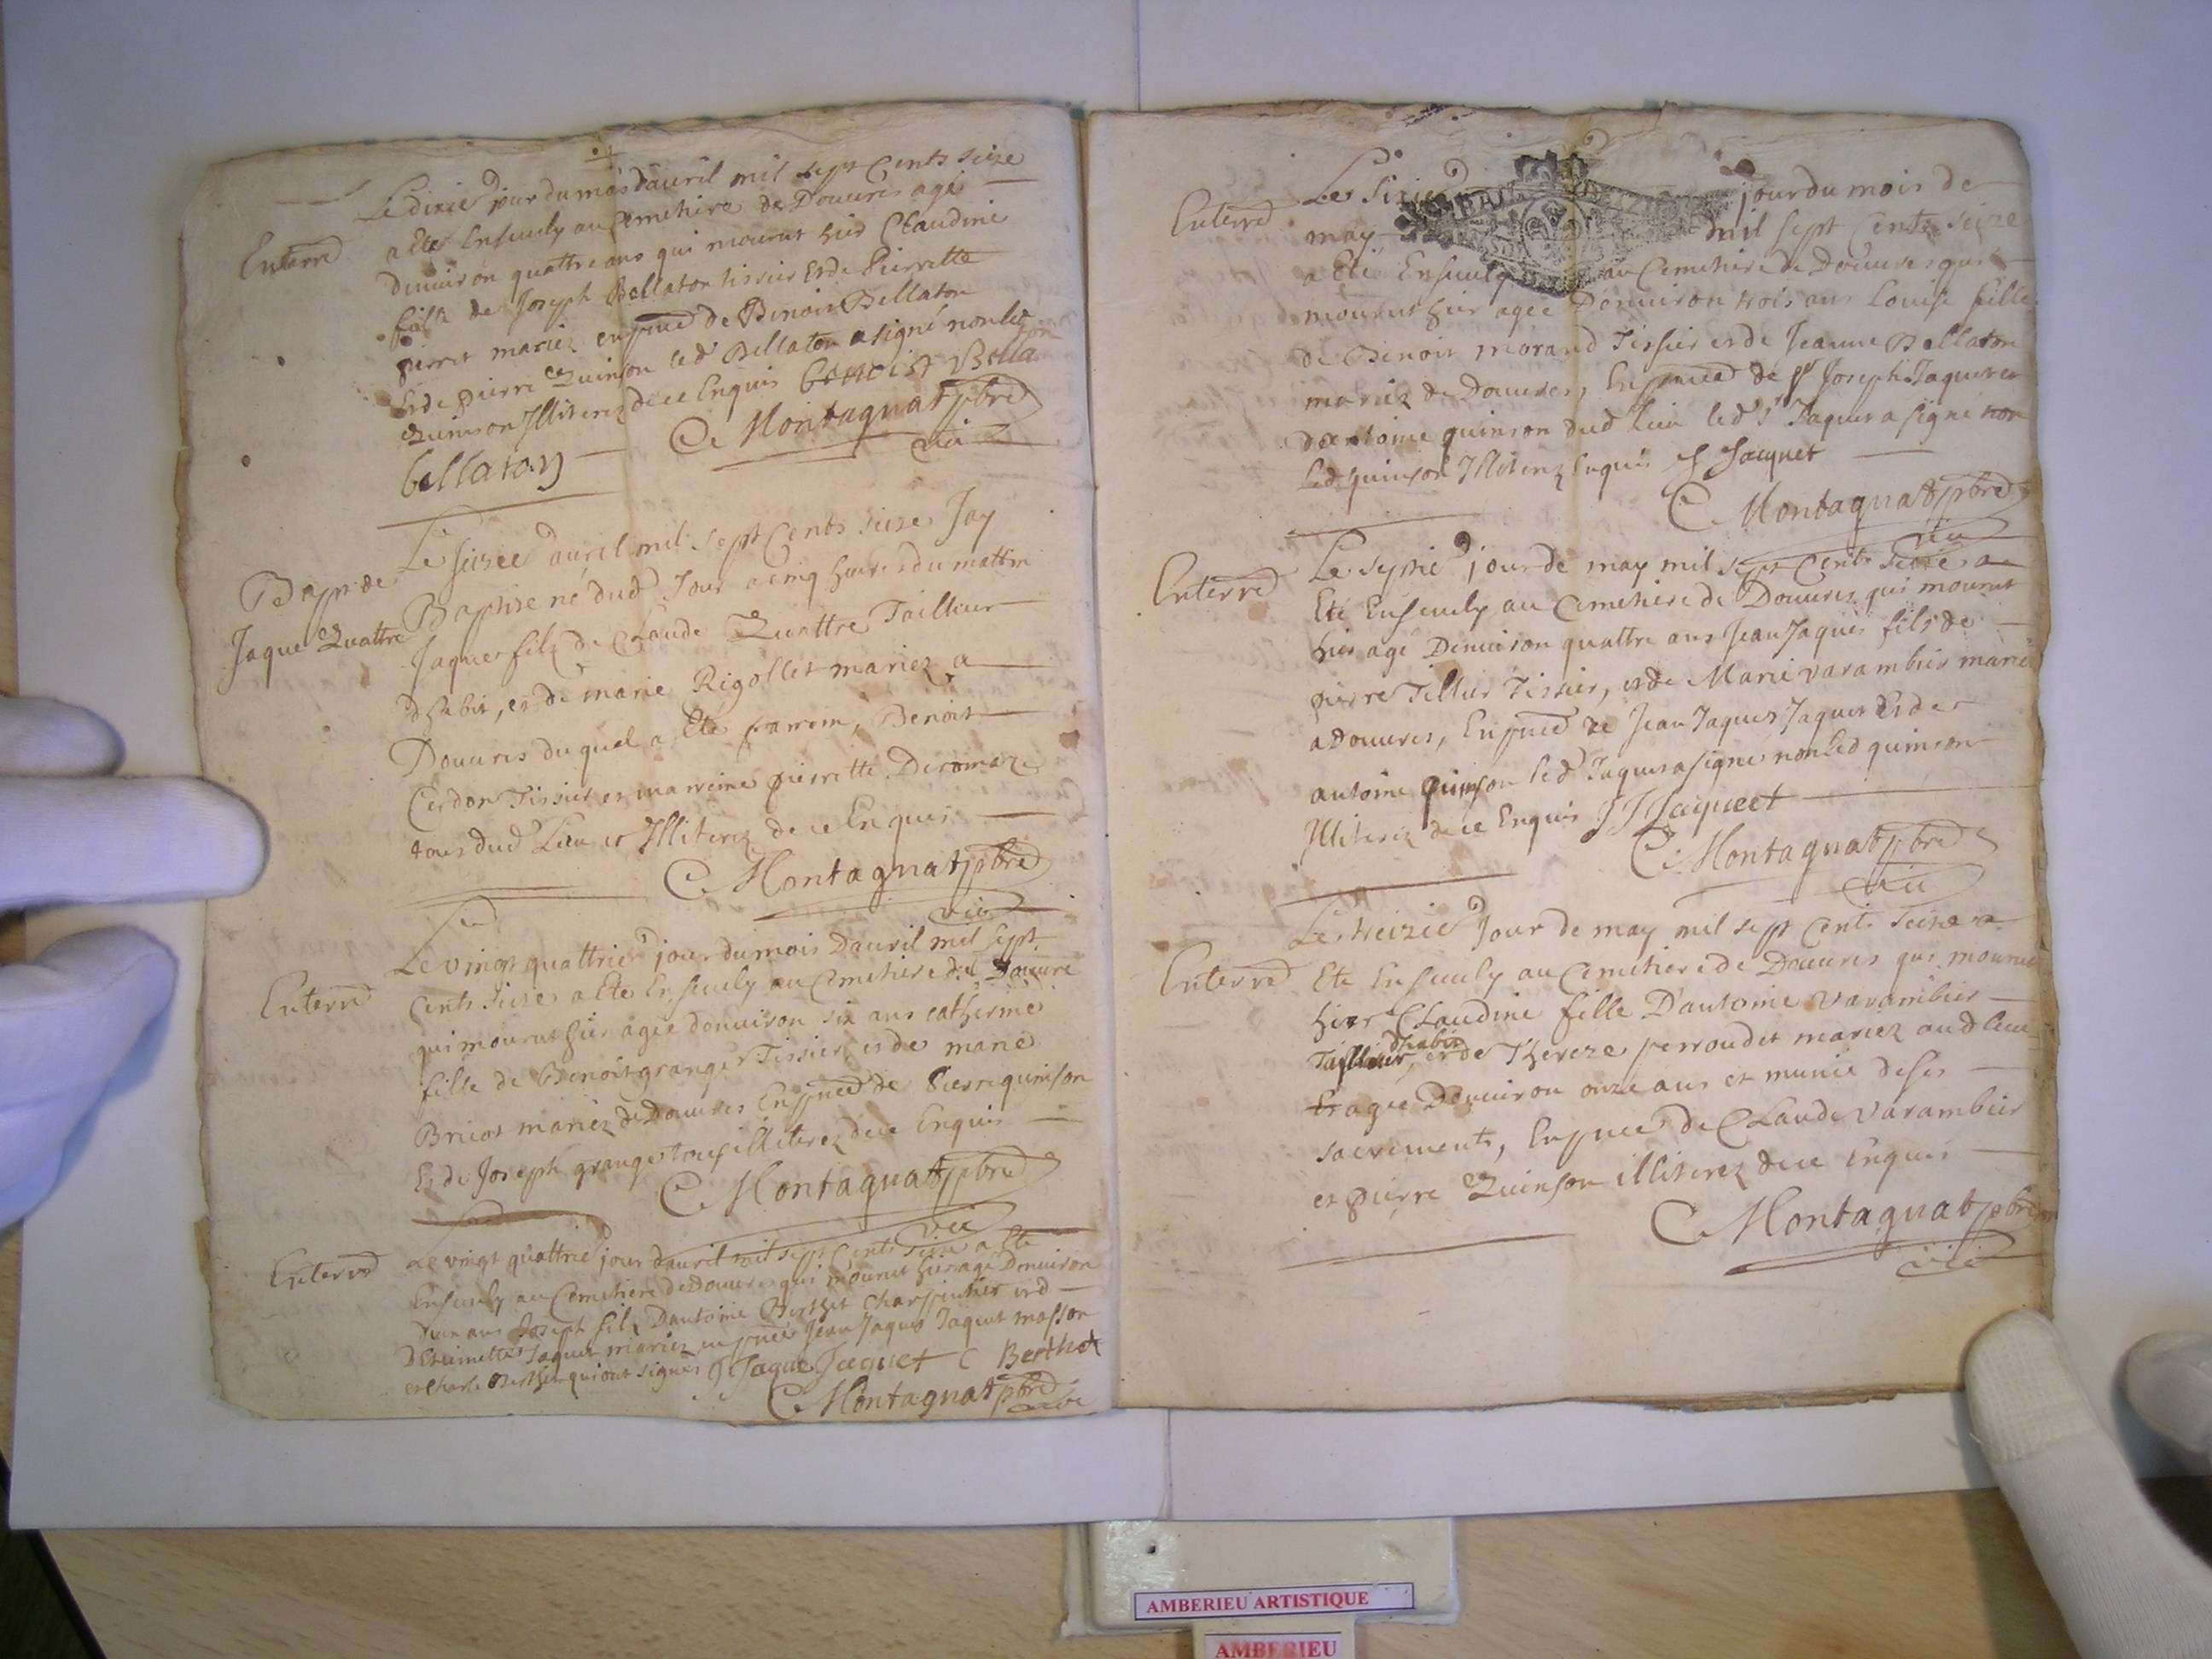 Le dixie jour du mois d'auril mil sept Cents seize
Enterré
a Eté Ensevely au Cemetiere de Douures agée
Denuiron quattre ans qui mourut hier Claudine
fille de Joseph Bellaton tissier et de Pierrette
pierret mariez en pnce de Benoist Bellaton
et de pierre Quinson led Bellaton a signé non led
Quinson Illiterez de ce Enquis benoist Bella
bellaton
C. Montagnat pbre
vic
Le seizee auril mil sept Cents seize Jay
Bap de
Baptize né dud Jour a cinq heures du mattin
Jaque Quattre
Jaques filz de Claude Quattre Tailleur
d'habit, et de marie Rigollet mariez a
Douures du quel a Eté parrein, Benoit
Cerdon Tissier et marreine pierrette Deromaz
tous dud Lieu et Illiterez de ce Enquis
C. Montagnat pbre
vic
Le vingt quattrie jour du mois Dauril mil sept
Enterré
Cents seize a Eté Ensevely au Cemetiere de Douure
qui mourut hier agée denuiron six ans catherine
fille de Benoit granger Tissier, et de marie
Bricot mariez de Douures En pnce de Pierre quinson
Et de Joseph granger tous illiterez de ce Enquis
C. Montagnat pbre
vic
Enterré
Le vingt quattrie jour dauril mil sept Cents seize a Eté
Ensevely au Cemetiere de Douures qui mourut hier agé Denuiron
dun ans Joseph filz Dantoine Berthet Charpentier et d
DEtiennette Jaquet mariez en pnce Jean Jaques Jaquet masson
et Charle Berthet qui ont signés J Jaque Jacquet C Berthet
C. Montagnat pbre
vic
Le Sixie jour du mois de
Enterré
may mil sept Cents seize
a Eté Ensevely au Cemetiere de Douures qui
mourut hier agée Denuiron trois ans Louise fille
de Benoit morand Tissier et de Jeanne Bellaton
mariez de Douures, En pnce de sr Joseph Jaquet et
dantoine quinson dud lieu led sr Jaquet a signé non
led quinson Illiterez Enquis J Jacquet
C. Montagnat pbre
vic
Le septie jour de may mil sept Cents seize a
Enterré
Eté Ensevely au Cemetiere de Douures qui mourut
hier agé Denuiron quattre ans Jean Jaques fils de
pierre Tellier Tissier, et de Marie varambier mariez
a Douures, En pnce de Jean Jaques Jaquet Et de
antoine quinson led Jaquet a signé non led quinson
Illiterez de ce Enquis J J Jacqueet
C. Montagnat pbre
vic
Le treizie Jour de may mil sept Cents seize a
Enterré
Eté Ensevely au Cemetiere de Douures qui mourut
hier Claudine fille D'antoine varambier
dhabit
Tailleur, et de Thereze perroudet mariez aud lieu
Et agée Denuiron onze ans et munie de ses
sacrements, En pnce de Claude varambier
et pierre Quinson illiterez de ce Enquis
C. Montagnat pbre
vic
AMBERIEU ARTISTIQUE
AMBERIEU